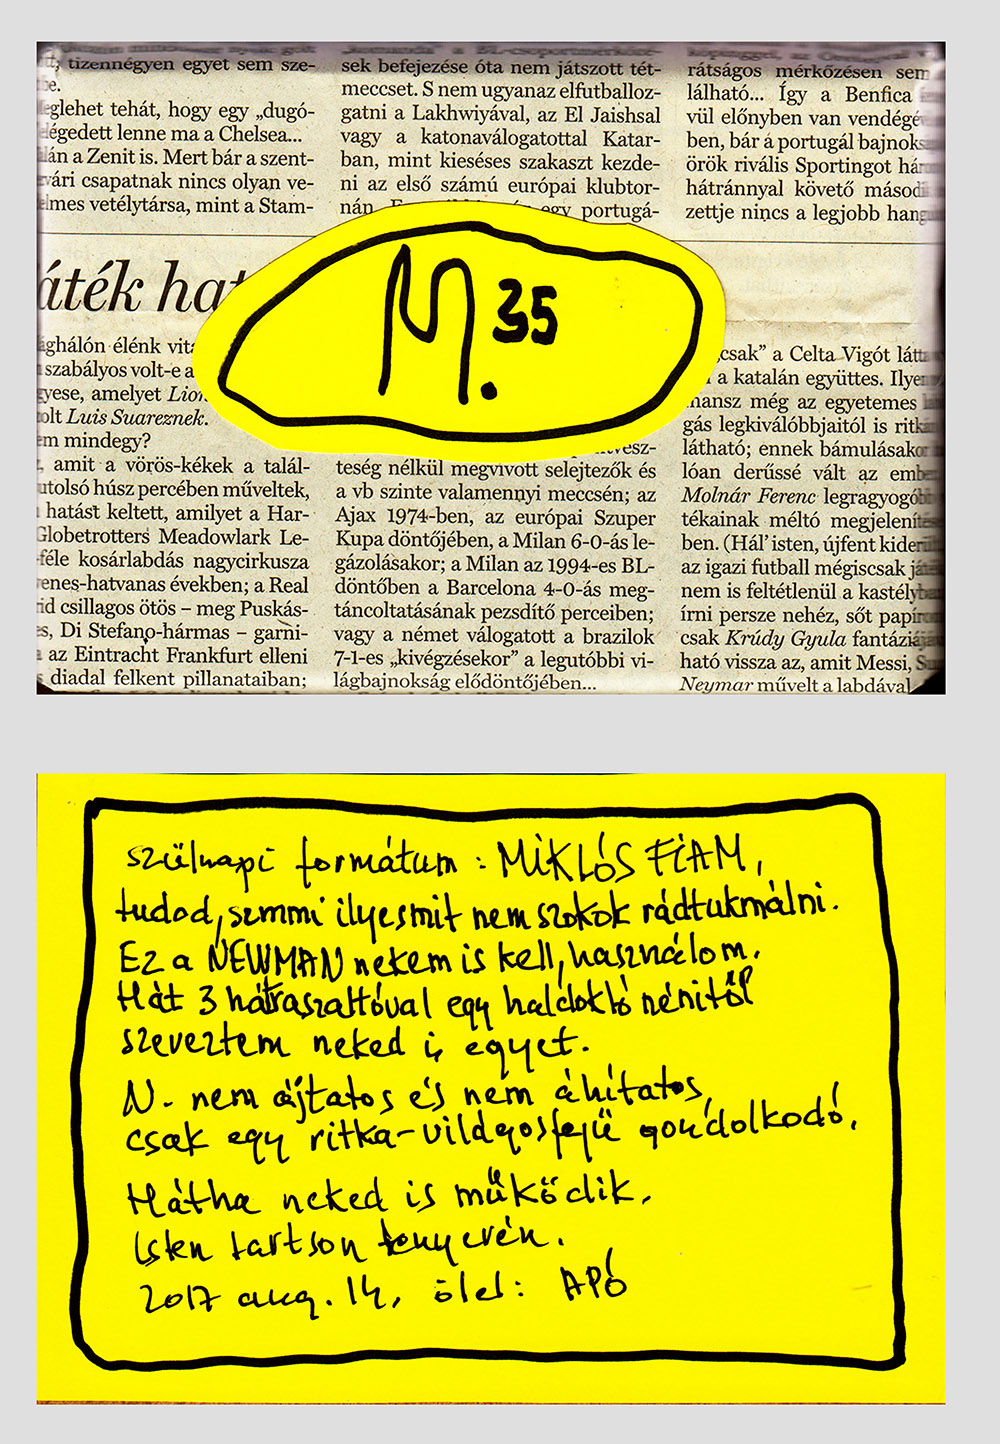 tizennégyen egyet sem sze-
eglehet tehát, hogy egy „dugó-
légedett lenne ma a Chelsea...
lán a Zenit is. Mert bár a szent-
vári csapatnak nincs olyan ve-
lmes vetélytársa, mint a Stam-
sek befejezése óta nem játszott tét-
meccset. S nem ugyanaz elfutballoz-
gatni a Lakhwiyával, az El Jaishsal
vagy a katonaválogatottal Katar-
ban, mint kieséses szakaszt kezde-
ni az első számú európai klubtor-
nán. egy portugá-
rátságos mérkőzésen sem
lálható... Így a Benfica
vül előnyben van vendégé
ben, bár a portugál bajnok
örök rivális Sportingot
hátránnyal követő másod
zettje nincs a legjobb
áték hat
ághálón élénk vita
szabályos volt-e a
gyese, amelyet Lion
olt Luis Suareznek.
em mindegy?
, amit a vörös-kékek a talál-
utolsó húsz percében műveltek,
hatást keltett, amilyet a Har-
Globetrotters Meadowlark Le-
féle kosárlabdás nagycirkusza
enes-hatvanas években; a Real
id csillagos ötös – meg Puskás-
s, Di Stefano-hármas – garni-
az Eintracht Frankfurt elleni
diadal felkent pillanataiban;
vesz-
teség nélkül megvívott selejtezők és
a vb szinte valamennyi meccsén; az
Ajax 1974-ben, az európai Szuper
Kupa döntőjében, a Milan 6-0-ás le-
gázolásakor; a Milan az 1994-es BL-
döntőben a Barcelona 4-0-ás meg-
táncoltatásának pezsdítő perceiben;
vagy a német válogatott a brazilok
7-1-es „kivégzésekor” a legutóbbi vi-
lágbajnokság elődöntőjében...
„csak” a Celta Vigót látta
a katalán együttes. Ilyen
mansz még az egyetemes
gás legkiválóbbjaitól is ritkán
látható; ennek bámulásakor
lóan derűssé vált az embe
Molnár Ferenc legragyogóbb
tékainak méltó megjelenítése
ben. (Hál’ isten, újfent kiderült
az igazi futball mégiscsak játé
nem is feltétlenül a kastélyban
írni persze nehéz, sőt papíron
csak Krúdy Gyula fantáziájá
ható vissza az, amit Messi, Su
Neymar művelt a labdával
M. 35
szülnapi formátum: MIKLÓS FIAM,
tudod, semmi ilyesmit nem szokok rádtukmálni.
Ez a NEWMAN nekem is kell, használom.
Hát 3 hátraszaltóval egy haldokló nénitől
szereztem neked is egyet.
N. nem ájtatos és nem áhítatos,
csak egy ritka-világosfejű gondolkodó.
Hátha neked is működik.
Isten tartson tenyerén.
2017 aug. 14. ölel: APÓ